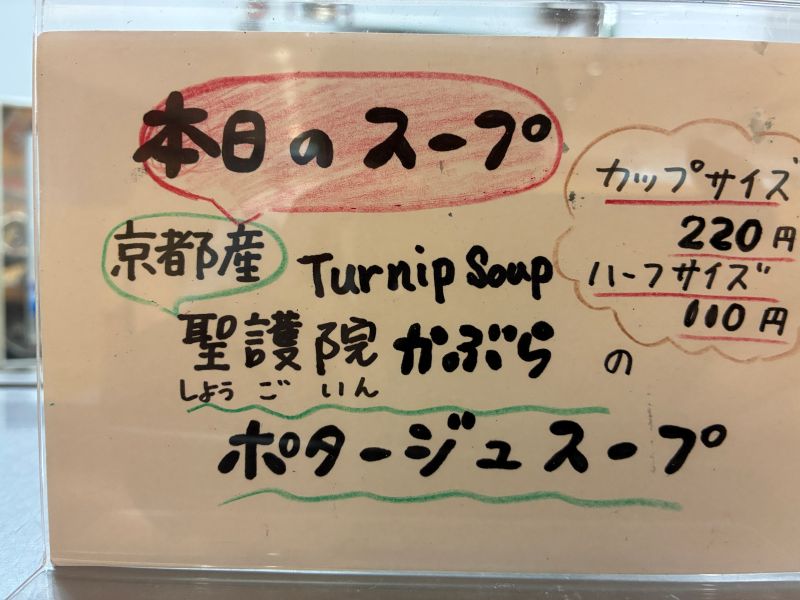 本日のスープ
カップサイズ
220円
ハーフサイズ
110円
京都産
Turnip Soup
聖護院かぶらの
しょうごいん
ポタージュスープ